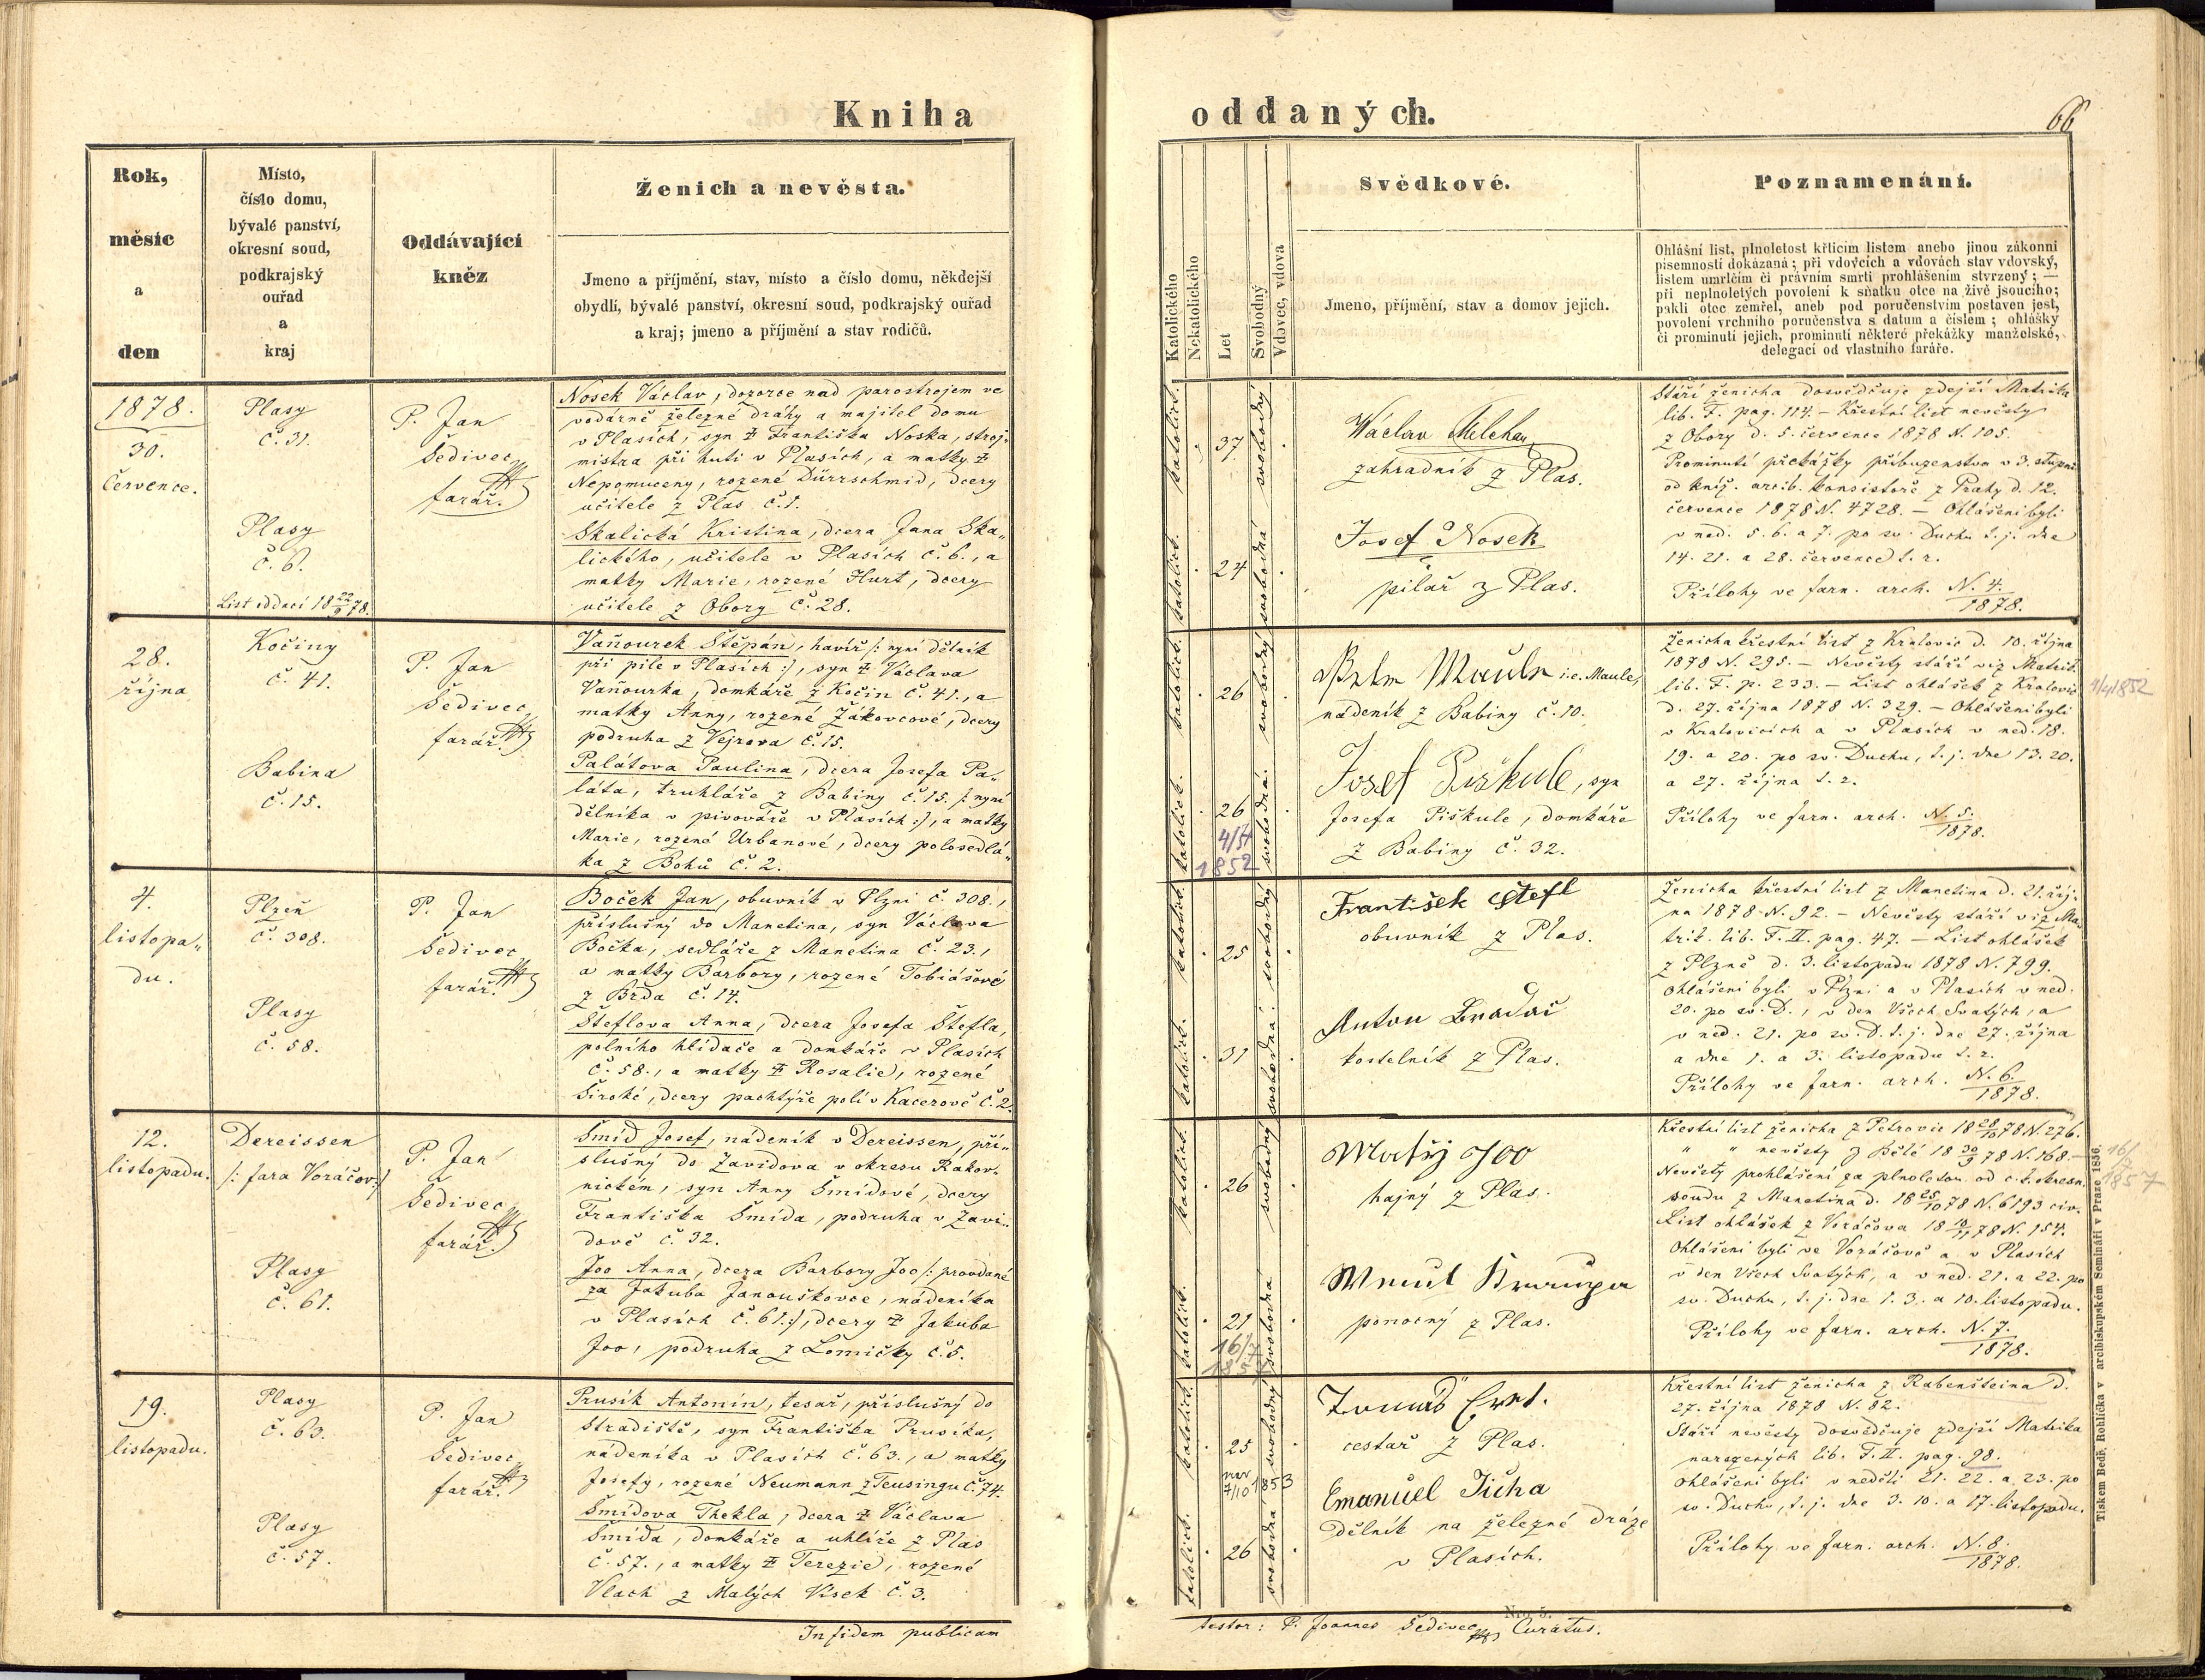 Kniha
oddaných.
66
Rok,
měsíc
a
den
Místo,
číslo domu,
bývalé panství,
okresní soud,
podkrajský
ouřad
a
kraj
Oddávající
kněz
Ženich a nevěsta.
Jmeno a příjmění, stav, místo a číslo domu, někdejší
obydlí, bývalé panství, okresní soud, podkrajský ouřad
a kraj; jmeno a příjmění a stav rodičů.
Katolického
Nekatolického
Let
Svobodný
Vdovec, vdova
Svědkové.
Jmeno, příjmění, stav a domov jejich.
Poznamenání.
Ohlášní list, plnoletost křticím listem anebo jinou zákonní
písemností dokázaná; při vdovcích a vdovách stav vdovský,
listem umrlčím či právním smrti prohlášením stvrzený; —
při neplnoletých povolení k sňatku otce na živě jsoucího;
pakli otec zemřel, aneb pod poručenstvím postaven jest,
povolení vrchního poručenstva s datum a číslem; ohlášky
či prominutí jejich, prominutí některé překážky manželské,
delegací od vlastního faráře.
1878.
30.
Července.
Plasy
č. 31.
Plasy
č. 6.
List oddací 18 22/9 78.
P. Jan
Šedivec
farář.
Nosek Václav, dozorce nad parostrojem ve
vodárně železné dráhy a majitel domu
v Plasích, syn ‡ Františka Noska, stroj-
mistra při huti v Plasích, a matky ‡
Nepomuceny, rozené Dürrschmid, dcery
učitele z Plas č. 1.
Skalická Kristina, dcera Jana Ska„
lického, učitele v Plasích č. 6., a
matky Marie, rozené Hurt, dcery
učitele z Obory č. 28.
katolick.
37
svobodný
katolick.
24
svobodná
Wáclav
zahradník z Plas.
Josef Nosek
pilař z Plas.
Stáří ženicha dosvědčuje zdejší Matrika
lib. F. pag. 114. – Křestní list nevěsty
z Obory d. 5. července 1878 N. 105.
Prominutí překážky příbuzenstva v 3. stupni
od kníž. arcib. konsistoře z Prahy d. 12.
července 1878 N. 4728. – Ohlášeni byli
v ned. 5. 6. a 7. po sv. Duchu t. j. dne
14. 21. a 28. července t. r.
Přílohy ve farn. arch. N. 4./1878.
28.
října
Kočiny
č. 41.
Babina
č. 15.
P. Jan
Šedivec
farář.
Vaňourek Štěpán, havíř /: nyní dělník
při pile v Plasích :/, syn ‡ Václava
Vaňourka, domkáře z Kočin č. 41., a
matky Anny, rozené Žákovcové, dcery
podruha z Vejrova č. 15.
Palátova Paulina, dcera Josefa Pa„
láta, truhláře z Babiny č. 15. /: nyní
dělníka v pivováře v Plasích :/, a matky
Marie, rozené Urbanové, dcery polosedlá„
ka z Bohů č. 2.
katolick.
26
svobodný
katolick.
26
4/4
1852
svobodná.
i. e. Maule,
nádeník z Babiny č. 10.
Josef Piškule, syn
Josefa Piškule, domkáře
z Babiny č. 32.
Ženicha křestní list z Kralovic d. 10. října
1878 N. 295. – Nevěsty stáří viz Matrik.
lib. F. p. 233. – List ohlášek z Kralovic
d. 27. října 1878 N. 329. – Ohlášeni byli
v Kralovicích a v Plasích v ned. 18.
19. a 20. po sv. Duchu, t. j. dne 13. 20.
a 27. října t. r.
Přílohy ve farn. arch. N. 5./1878.
4/4 1852
4.
listopa„
du.
Plzeň
č. 308.
Plasy
č. 58.
P. Jan
Šedivec
farář.
Boček Jan, obuvník v Plzni č. 308.,
příslušný do Manetina, syn Václava
Bočka, sedláře z Manetina č. 23.,
a matky Barbory, rozené Tobiášové
z Brda č. 14.
Šteflova Anna, dcera Josefa Štefla,
polního hlídače a domkáře v Plasích
č. 58., a matky ‡ Rosalie, rozené
Široké, dcery pachtýře polí v Kacerově č. 2.
katolick.
25
svobodný
katolick.
31
svobodná
František Štefl
obuvník z Plas.
Anton Bradáč
kostelník z Plas.
Ženicha křestní list z Manetina d. 21. říj„
na 1878 N. 92. – Nevěsty stáří viz Ma„
trik. lib. F. II. pag. 47. – List ohlášek
z Plzně d. 3. listopadu 1878 N. 799.
Ohlášeni byli v Plzni a v Plasích v ned.
20. po sv. D., v den Všech Svatých, a
v ned. 21. po sv. D. t. j. dne 27. října
a dne 1. a 3. listopadu t. r.
Přílohy ve farn. arch. N. 6./1878.
12.
listopadu.
Dereissen
/: fara Voráčov :/
Plasy
č. 61.
P. Jan
Šedivec
farář.
Šmíd Josef, nádeník v Dereissen, pří„
slušný do Zavidova v okresu Rakov„
nickém, syn Anny Šmídové, dcery
Františka Šmída, podruha v Zavi„
dově č. 32.
Joo Anna, dcera Barbory Joo /: provdané
za Jakuba Janouškovce, nádeníka
v Plasích č. 61. :/, dcery ‡ Jakuba
Joo, podruha z Lomičky č. 5.
katolick.
26
svobodný
katolick.
21
16/7
1857
svobodná
Matěj Joo
hajný z Plas.
ponocný z Plas.
Křestní list ženicha z Petrovic 18 28/10 78 N. 276.
" " nevěsty z Bělé 18 30/9 78 N. 168. –
Nevěsty prohlášení za plnoletou od c. k. okresn.
soudu z Manetina d. 18 25/10 78 N. 6193 civ.
List ohlášek z Voráčova 18 10/11 78 N. 154.
Ohlášeni byli ve Voráčově a v Plasích
v den Všech Svatých, a v ned. 21. a 22. po
sv. Duchu, t. j. dne 1. 3. a 10. listopadu.
Přílohy ve farn. arch. N. 7./1878.
16/7
1857
19.
listopadu.
Plasy
č. 63.
Plasy
č. 57.
P. Jan
Šedivec
farář.
Prusík Antonín, tesař, příslušný do
Stradiště, syn Františka Prusíka,
nádeníka v Plasích č. 63., a matky
Josefy, rozené Neumann z Teusingu č. 74.
Šmídova Thekla, dcera ‡ Václava
Šmída, domkáře a uhlíře z Plas
č. 57., a matky ‡ Terezie, rozené
Vlach z Malých Vísek č. 3.
katolick.
25
nar
7/10 1853
svobodný
katolick.
26
svobodná
cestař z Plas.
Emanuel Jícha
Dělník na železné dráze
v Plasích.
Křestní list ženicha z Rabenšteina d.
27. října 1878 N. 82.
Stáří nevěsty dosvědčuje zdejší Matrika
narozených lib. F. II. pag. 98.
Ohlášeni byli v neděli 21. 22. a 23. po
sv. Duchu, t. j. dne 3. 10. a 17. listopadu.
Přílohy ve farn. arch. N. 8./1878.
Tiskem Bedř. Rohlíčka v arcibiskupském Semináři v Praze 1856.
In fidem publicam
Nro. 5.
testor: P. Joannes Šedivec Curatus.